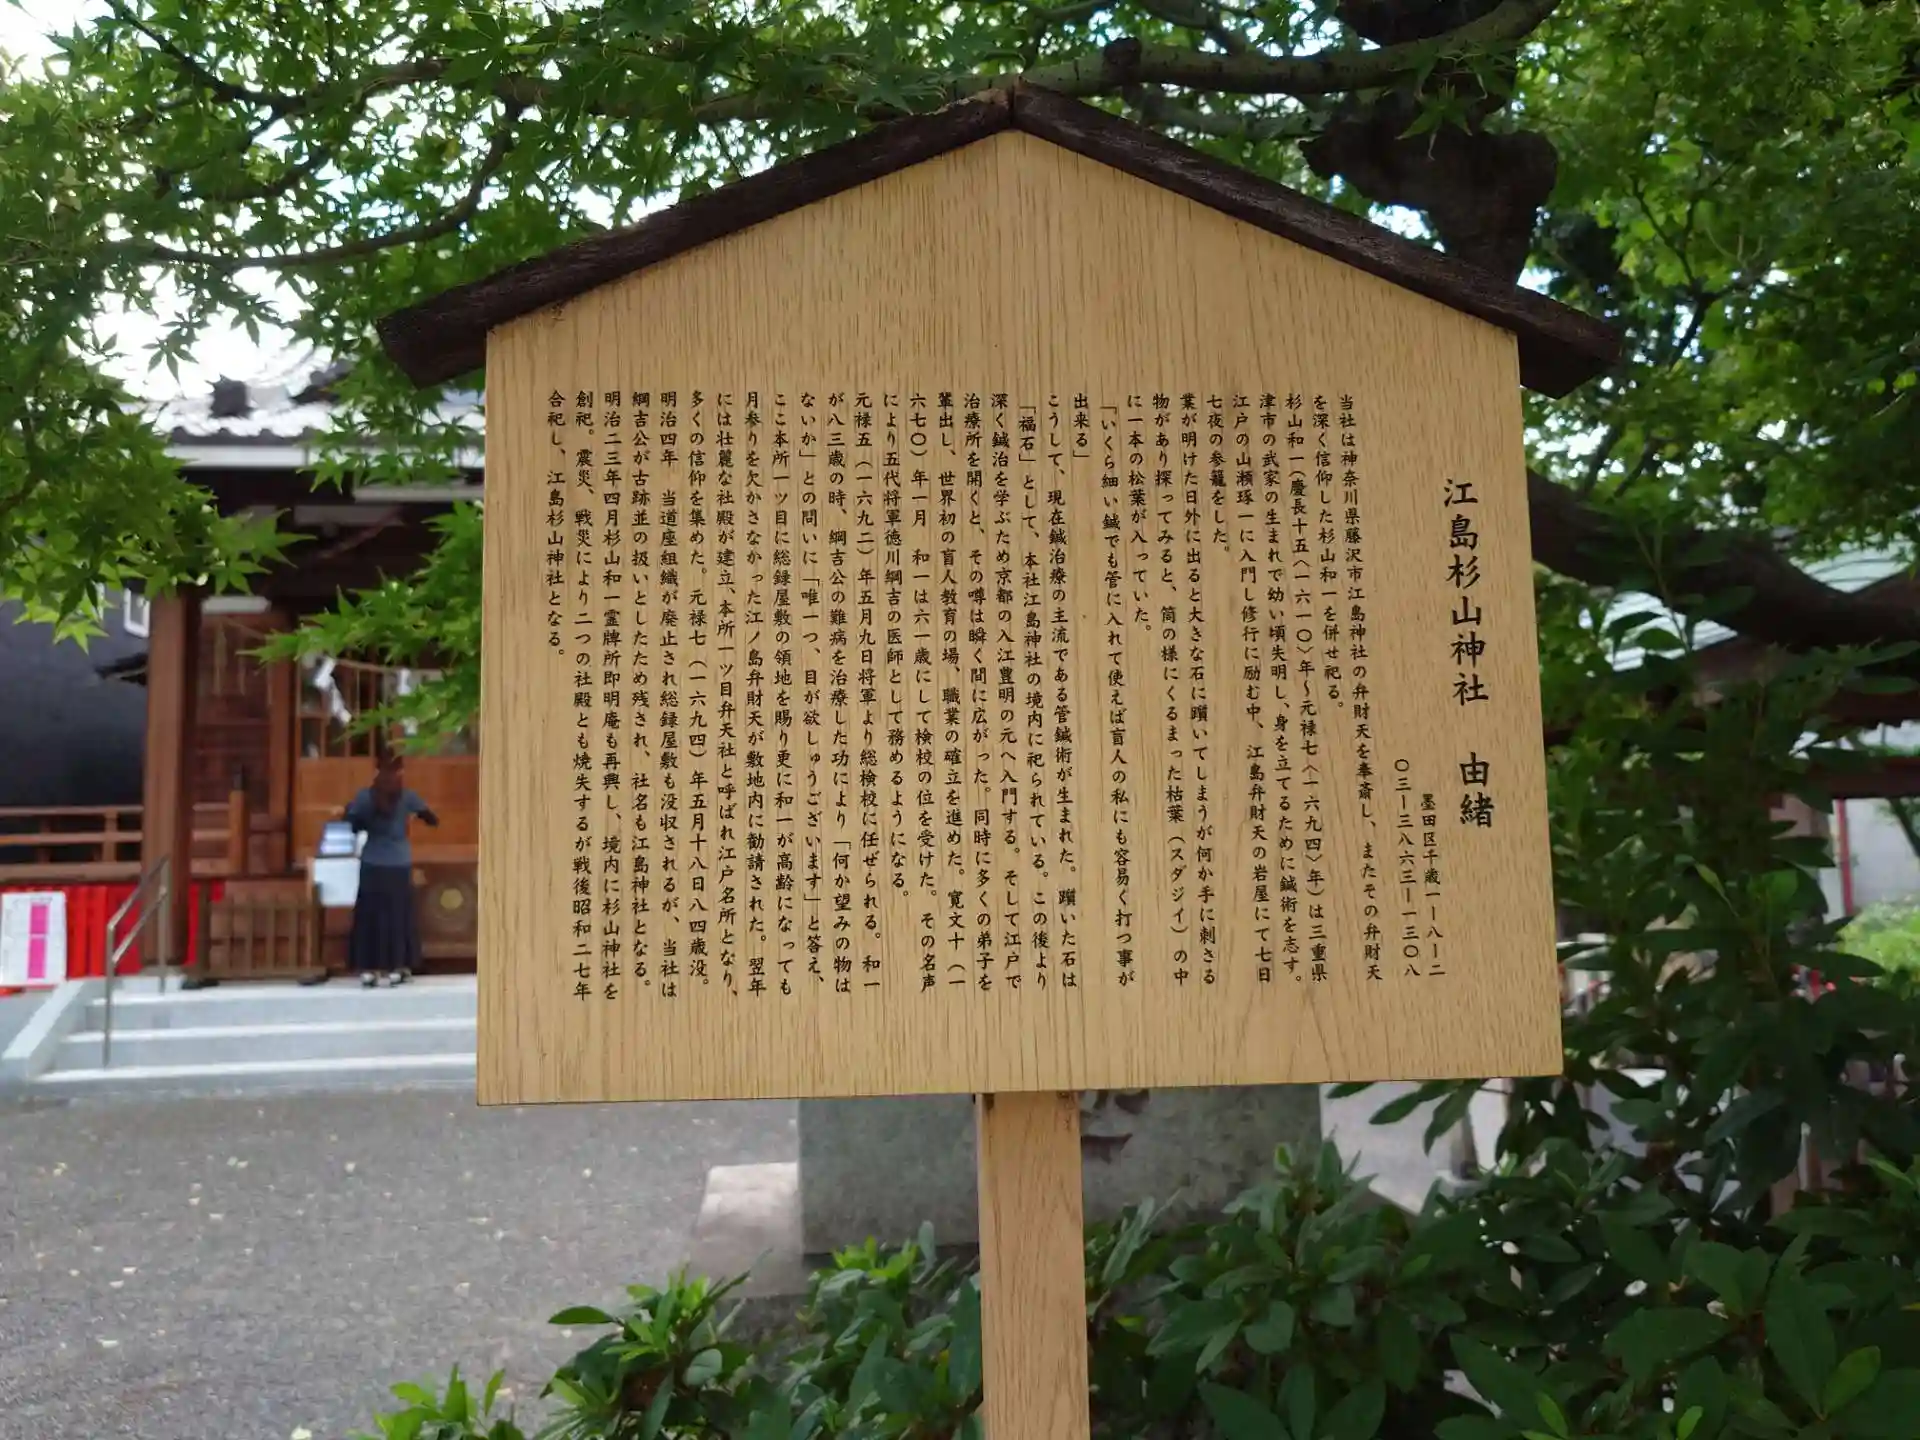 江島杉山神社　由緒
墨田区千歳一ー八ー二
〇三ー三八六三ー一三〇八
当社は神奈川県藤沢市江島神社の弁財天を奉斎し、またその弁財天
を深く信仰した杉山和一を併せ祀る。
杉山和一（慶長十五〈一六一〇〉年～元禄七〈一六九四〉年）は三重県
津市の武家の生まれで幼い頃失明し、身を立てるために鍼術を志す。
江戸の山瀬琢一に入門し修行に励む中、江島弁財天の岩屋にて七日
七夜の参籠をした。
業が明けた日外に出ると大きな石に躓いてしまうが何か手に刺さる
物があり探ってみると、筒の様にくるまった枯葉（スダジイ）の中
に一本の松葉が入っていた。
「いくら細い鍼でも管に入れて使えば盲人の私にも容易く打つ事が
出来る」
こうして、現在鍼治療の主流である管鍼術が生まれた。躓いた石は
「福石」として、本社江島神社の境内に祀られている。この後より
深く鍼治を学ぶため京都の入江豊明の元へ入門する。そして江戸で
治療所を開くと、その噂は瞬く間に広がった。同時に多くの弟子を
輩出し、世界初の盲人教育の場、職業の確立を進めた。寛文十（一
六七〇）年一月　和一は六一歳にして検校の位を受けた。その名声
により五代将軍徳川綱吉の医師として務めるようになる。
元禄五（一六九二）年五月九日将軍より総検校に任ぜられる。和一
が八三歳の時、綱吉公の難病を治療した功により「何か望みの物は
ないか」との問いに「唯一つ、目が欲しゅうございます」と答え、
ここ本所一ツ目に総録屋敷の領地を賜り更に和一が高齢になっても
月参りを欠かさなかった江ノ島弁財天が敷地内に勧請された。翌年
には壮麗な社殿が建立、本所一ツ目弁天社と呼ばれ江戸名所となり、
多くの信仰を集めた。元禄七（一六九四）年五月十八日八四歳没。
明治四年　当道座組織が廃止され総録屋敷も没収されるが、当社は
綱吉公が古跡並の扱いとしたため残され、社名も江島神社となる。
明治二三年四月杉山和一霊牌所即明庵も再興し、境内に杉山神社を
創祀。震災、戦災により二つの社殿とも焼失するが戦後昭和二七年
合祀し、江島杉山神社となる。